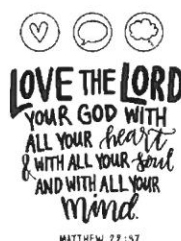 LOVE THE LORD
YOUR GOD WITH
ALL YOUR heart
& WITH ALL YOUR Soul
AND WITH ALL YOUR
Mind.
MATTHEW 22:37